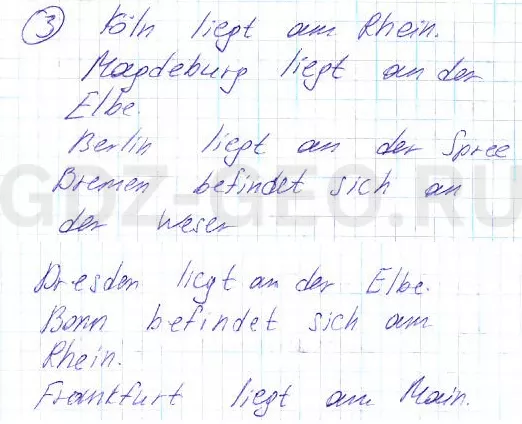 3 Köln liegt am Rhein.
Magdeburg liegt an der
Elbe.
Berlin liegt an der Spree
Bremen befindet sich an
der Weser
GDZ-GEO.RU
Dresden liegt an der Elbe.
Bonn befindet sich am
Rhein.
Frankfurt liegt am Main.